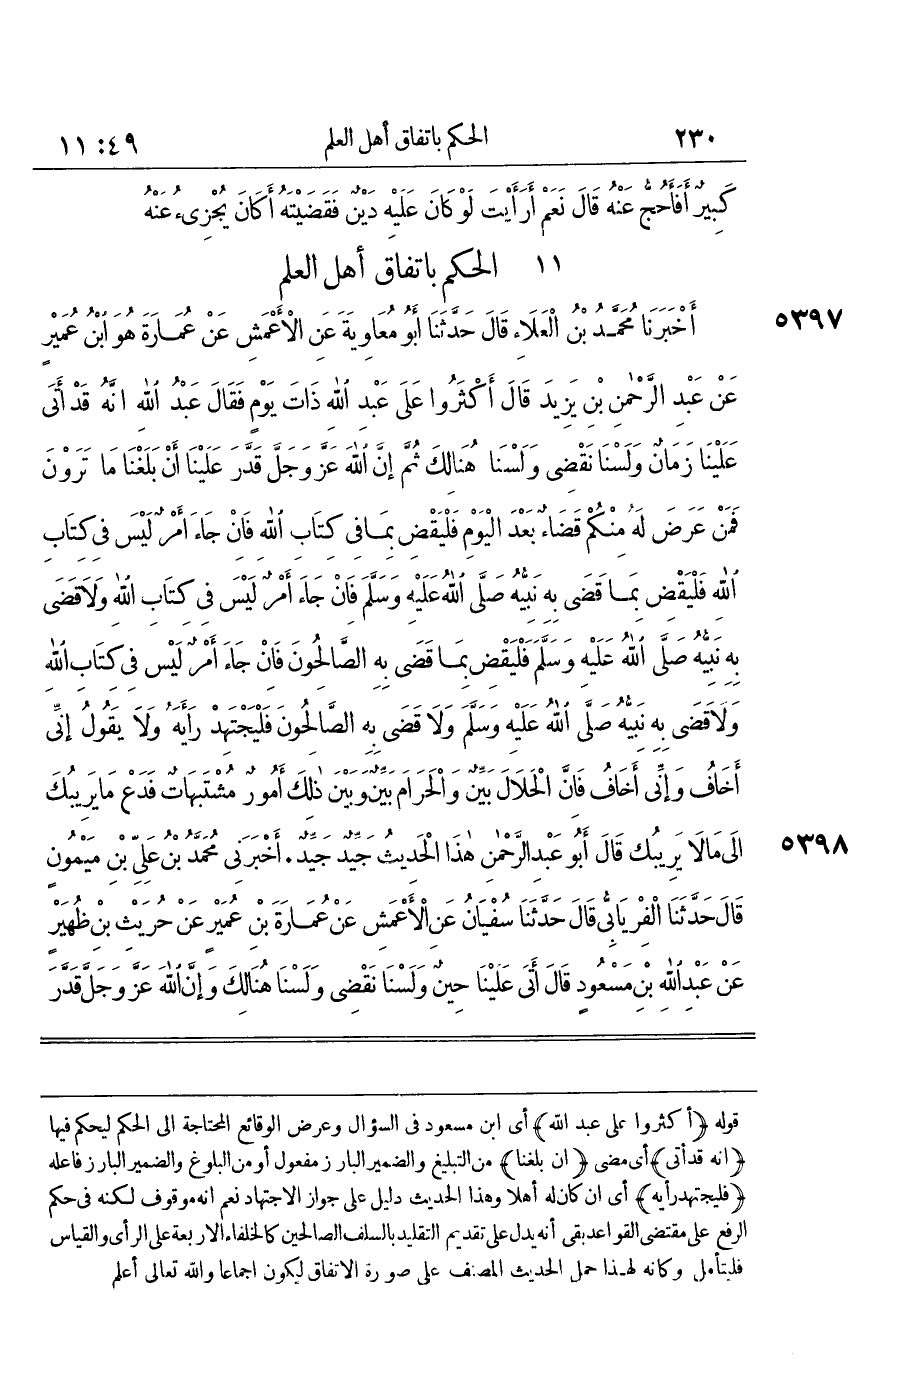 ٢٣٠ الحكم باتفاق أهل العلم ٤٩: ١١
كَبِيرٌ أَفَأَحُجُّ عَنْهُ قَالَ نَعَمْ أَرَأَيْتَ لَوْ كَانَ عَلَيْهِ دَيْنٌ فَقَضَيْتَهُ أَكَانَ يُجْزِىءُ عَنْهُ
١١ الحكم باتفاق أهل العلم
٥٣٩٧ أَخْبَرَنَا مُحَمَّدُ بْنُ الْعَلَاءِ قَالَ حَدَّثَنَا أَبُو مُعَاوِيَةَ عَنِ الْأَعْمَشِ عَنْ عُمَارَةَ هُوَ ابْنُ عُمَيْرٍ
عَنْ عَبْدِ الرَّحْمٰنِ بْنِ يَزِيدَ قَالَ أَكْثَرُوا عَلَى عَبْدِ اللهِ ذَاتَ يَوْمٍ فَقَالَ عَبْدُ اللهِ انَّهُ قَدْ أَتَى
عَلَيْنَا زَمَانٌ وَلَسْنَا نَقْضِى وَلَسْنَا هُنَالِكَ ثُمَّ إِنَّ اللهَ عَزَّ وَجَلَّ قَدَّرَ عَلَيْنَا أَنْ بَلَغْنَا مَا تَرَوْنَ
فَمَنْ عَرَضَ لَهُ مِنْكُمْ قَضَاءٌ بَعْدَ الْيَوْمِ فَلْيَقْضِ بِمَا فِى كِتَابِ اللهِ فَانْ جَاءَ أَمْرٌ لَيْسَ فِى كِتَابِ
اللهِ فَلْيَقْضِ بِمَا قَضَى بِهِ نَبِيُّهُ صَلَّى اللهُ عَلَيْهِ وَسَلَّمَ فَانْ جَاءَ أَمْرٌ لَيْسَ فِى كِتَابِ اللهِ وَلَا قَضَى
بِهِ نَبِيُّهُ صَلَّى اللهُ عَلَيْهِ وَسَلَّمَ فَلْيَقْضِ بِمَا قَضَى بِهِ الصَّالِحُونَ فَانْ جَاءَ أَمْرٌ لَيْسَ فِى كِتَابِ اللهِ
وَلَا قَضَى بِهِ نَبِيُّهُ صَلَّى اللهُ عَلَيْهِ وَسَلَّمَ وَلَا قَضَى بِهِ الصَّالِحُونَ فَلْيَجْتَهِدْ رَأْيَهُ وَلَا يَقُولُ إِنِّى
أَخَافُ وَإِنِّى أَخَافُ فَانَّ الْحَلَالَ بَيِّنٌ وَالْحَرَامَ بَيِّنٌ وَبَيْنَ ذٰلِكَ أُمُورٌ مُشْتَبِهَاتٌ فَدَعْ مَا يَرِيبُكَ
٥٣٩٨ الَى مَالَا يَرِيبُكَ قَالَ أَبُو عَبْدِ الرَّحْمٰنِ هٰذَا الْحَدِيثُ جَيِّدٌ جَيِّدٌ. أَخْبَرَنِى مُحَمَّدُ بْنُ عَلِىِّ بْنِ مَيْمُونٍ
قَالَ حَدَّثَنَا الْفِرْيَابِىُّ قَالَ حَدَّثَنَا سُفْيَانُ عَنِ الْأَعْمَشِ عَنْ عُمَارَةَ بْنِ عُمَيْرٍ عَنْ حُرَيْثِ بْنِ ظُهَيْرٍ
عَنْ عَبْدِ اللهِ بْنِ مَسْعُودٍ قَالَ أَتَى عَلَيْنَا حِينٌ وَلَسْنَا نَقْضِى وَلَسْنَا هُنَالِكَ وَإِنَّ اللهَ عَزَّ وَجَلَّ قَدَّرَ
قوله ﴿أكثروا على عبد الله﴾ أى ابن مسعود فى السؤال وعرض الوقائع المحتاجة الى الحكم ليحكم فيها
﴿انه قد أتى﴾ أى مضى ﴿ان بلغنا﴾ من التبليغ والضمير البارز مفعول أو من البلوغ والضمير البارز فاعله
﴿فليجتهد رأيه﴾ أى ان كان له أهلا وهذا الحديث دليل على جواز الاجتهاد نعم انه موقوف لكنه فى حكم
الرفع على مقتضى القواعد بقى أنه يدل على تقديم التقليد بالسلف الصالحين كالخلفاء الاربعة على الرأى والقياس
فليتأمل وكانه لهذا حمل الحديث المصنف على صورة الاتفاق ليكون اجماعا والله تعالى أعلم